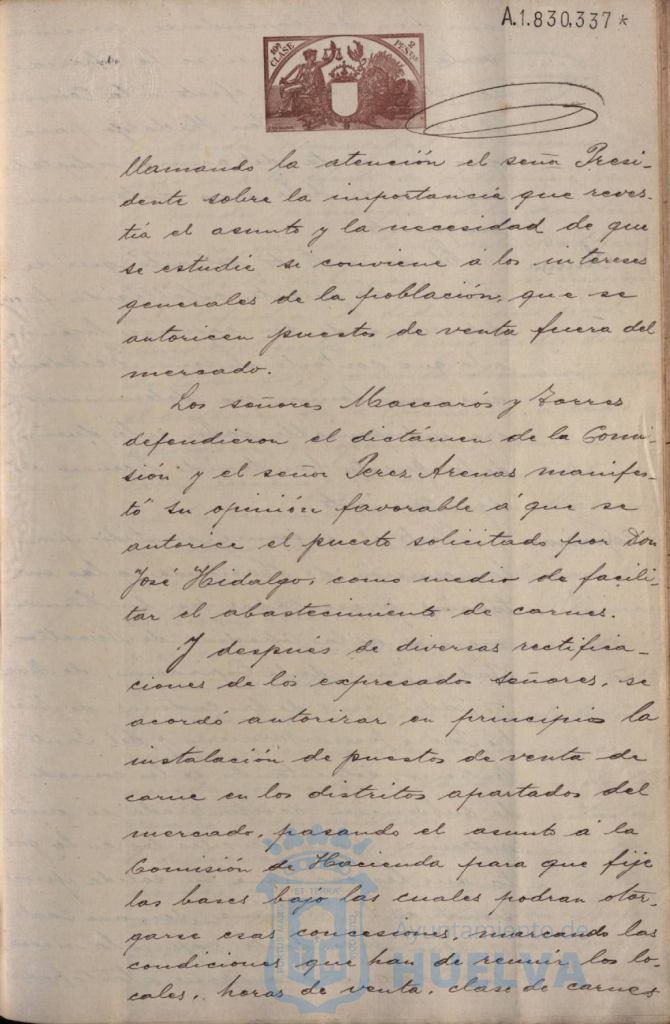 A.1.830,337*
10ª CLASE
2 PESETAS
llamando la atención el señor Presi-
dente sobre la importancia que reves-
tía el asunto y la necesidad de que
se estudie si conviene á los intereses
generales de la población, que se
autoricen puestos de venta fuera del
mercado.
Los señores Mascarós y Torres
defendieron el dictámen de la Comi-
sión y el señor Perez Arenas manifes-
tó su opinión favorable á que se
autorice el puesto solicitado por Don
José Hidalgo, como medio de facili-
tar el abastecimiento de carnes.
Y después de diversas rectifica-
ciones de los expresados señores, se
acordó autorizar en principio la
instalación de puestos de venta de
carne en los distritos apartados del
mercado, pasando el asunto á la
Comisión de Hacienda para que fije
las bases bajo las cuales podran otor-
garse esas concesiones, marcando las
condiciones que han de reunir los lo-
cales, horas de venta, clase de carnes
ET TERRA
Ayuntamiento de
HUELVA